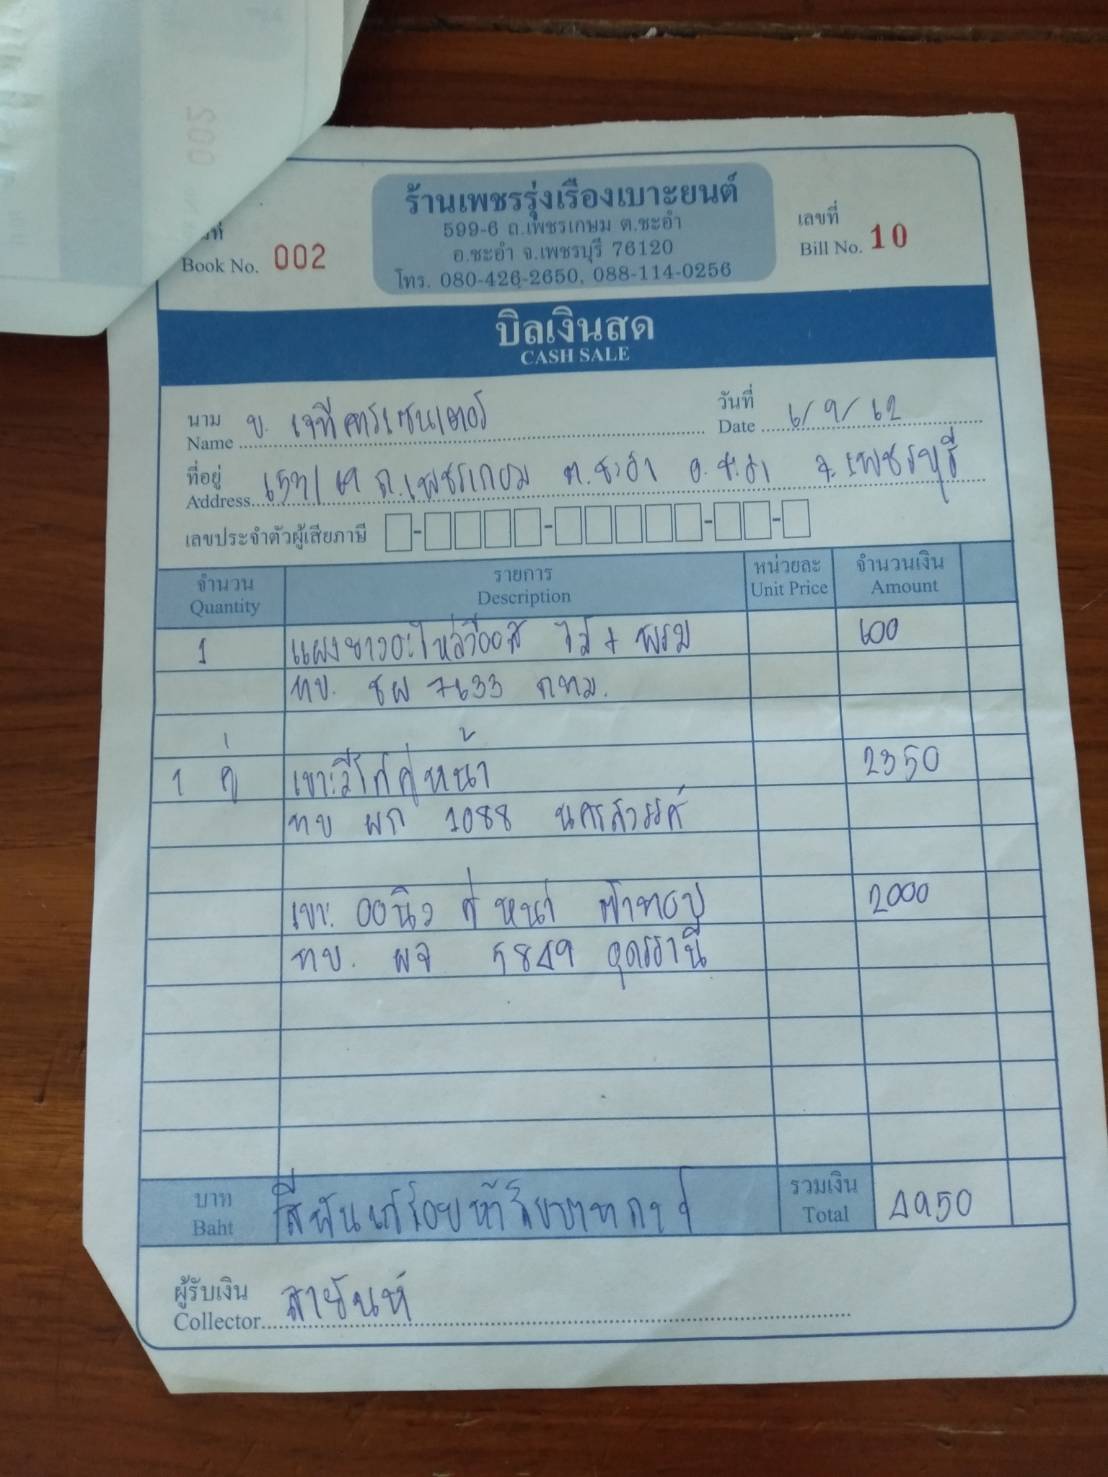 002
ที่
Book No. 002
ร้านเพชรรุ่งเรืองเบาะยนต์
599-6 ถ.เพชรเกษม ต.ชะอำ
อ.ชะอำ จ.เพชรบุรี 76120
โทร. 080-426-2650, 088-114-0256
เลขที่
Bill No. 10
บิลเงินสด
CASH SALE
นาม
Name บ. เจทีคาร์เซนเตอร์
วันที่
Date 6/9/62
ที่อยู่
Address ถ.เพชรเกษม ต.ชะอำ อ.ชะอำ จ.เพชรบุรี
เลขประจำตัวผู้เสียภาษี
จำนวน รายการ หน่วยละ จำนวนเงิน
Quantity Description Unit Price Amount
1 + พรม 600
ทบ. ชผ 7633 กทม.
1 คู่ เบาะวีโก้คู่หน้า 2350
ทบ ผก 1088 นครสวรรค์
เบาะ คู่ หน้า 2000
ทบ. ผจ 5849 อุดรธานี
บาท
Baht สี่พันเก้าร้อยห้าสิบบาท
รวมเงิน
Total 4950
ผู้รับเงิน
Collector สายันห์